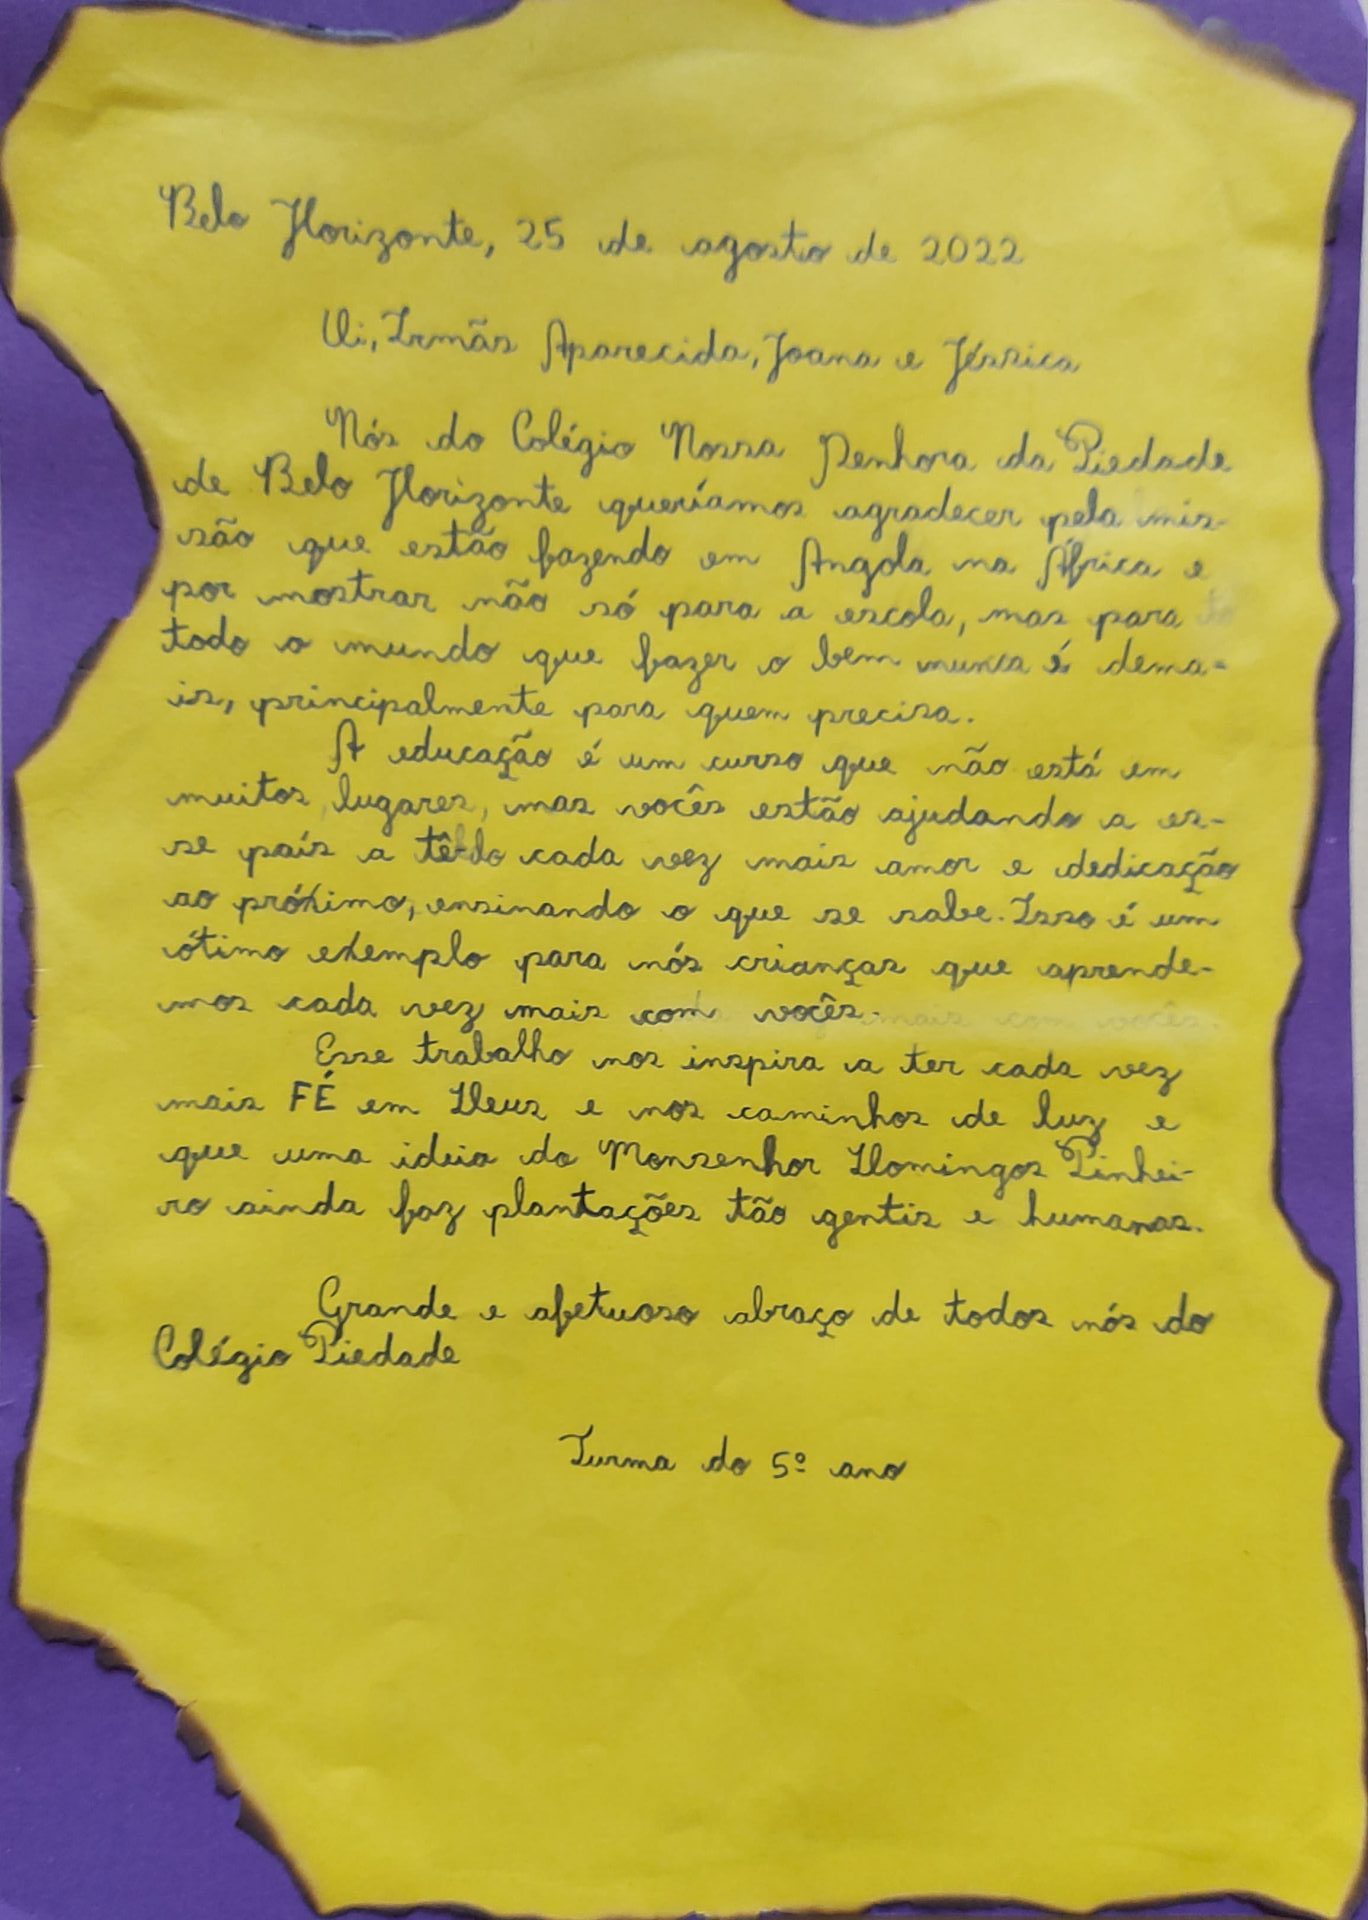 Belo Horizonte, 25 de agosto de 2022
Oi, Irmãs Aparecida, Joana e Jéssica
Nós do Colégio Nossa Senhora da Piedade
de Belo Horizonte queríamos agradecer pela mis-
são que estão fazendo em Angola na África e
por mostrar não só para a escola, mas para
todo o mundo que fazer o bem nunca é dema-
is, principalmente para quem precisa.
A educação é um curso que não está em
muitos lugares, mas vocês estão ajudando a es-
se país a tê-lo cada vez mais amor e dedicação
ao próximo, ensinando o que se sabe. Isso é um
ótimo exemplo para nós crianças que aprende-
mos cada vez mais com vocês.
Esse trabalho nos inspira a ter cada vez
mais FÉ em Deus e nos caminhos de luz e
que uma ideia do Monsenhor Domingos Pinhei-
ro ainda faz plantações tão gentis e humanas.
Grande e afetuoso abraço de todos nós do
Colégio Piedade
Turma do 5º ano